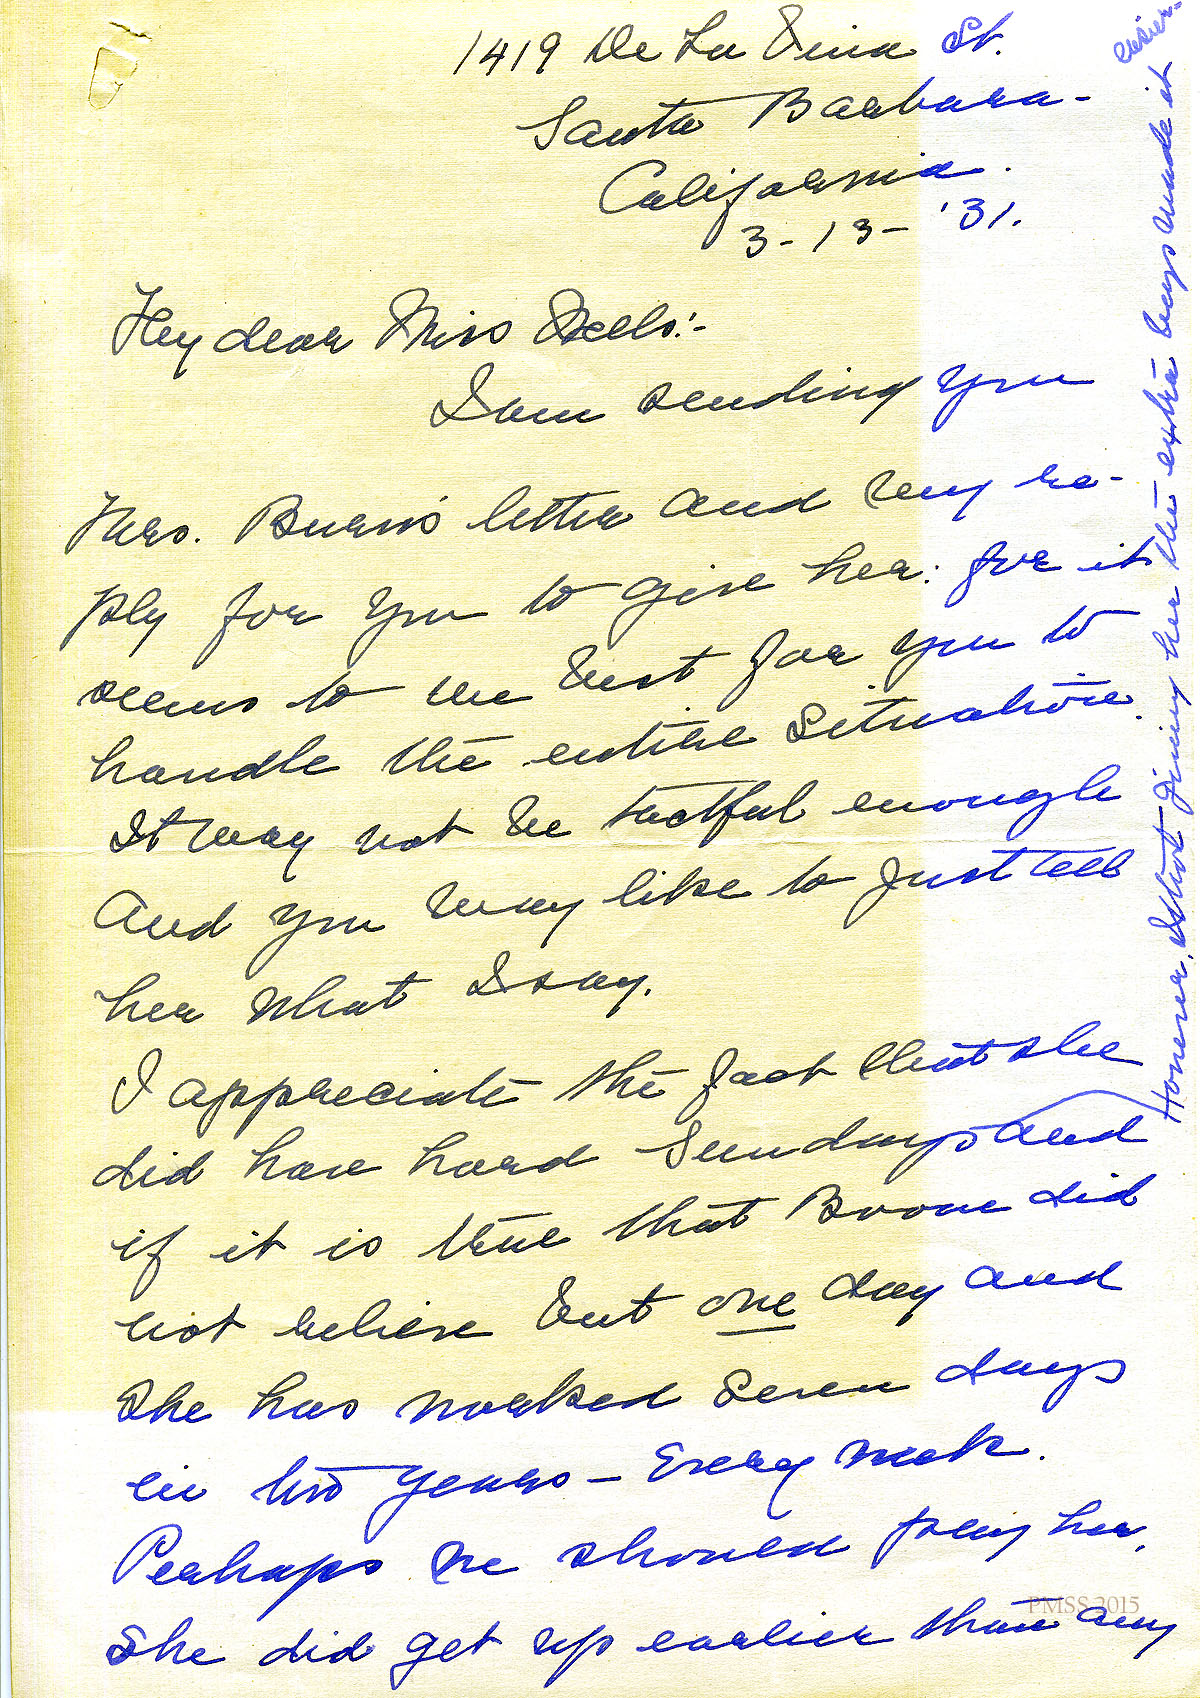 1419 De La Vina St.
Santa Barbara-
California.
3-13-'31.
My dear Miss Wells:-
I am sending you
Mrs. Burns letter and my re-
ply for you to give her: for it
seems to me best for you to
handle the entire situation.
It may not be tactful enough
and you may like to just tell
her what I say.
I appreciate the fact that she
did have hard Sundays and
if it is true that Boone did
not relieve but one day and
she has worked seven days
in two years – every week.
Perhaps we should pay her.
She did get up earlier than any
However, I thot giving her the extra boys made it
easier.
PMSS 2015